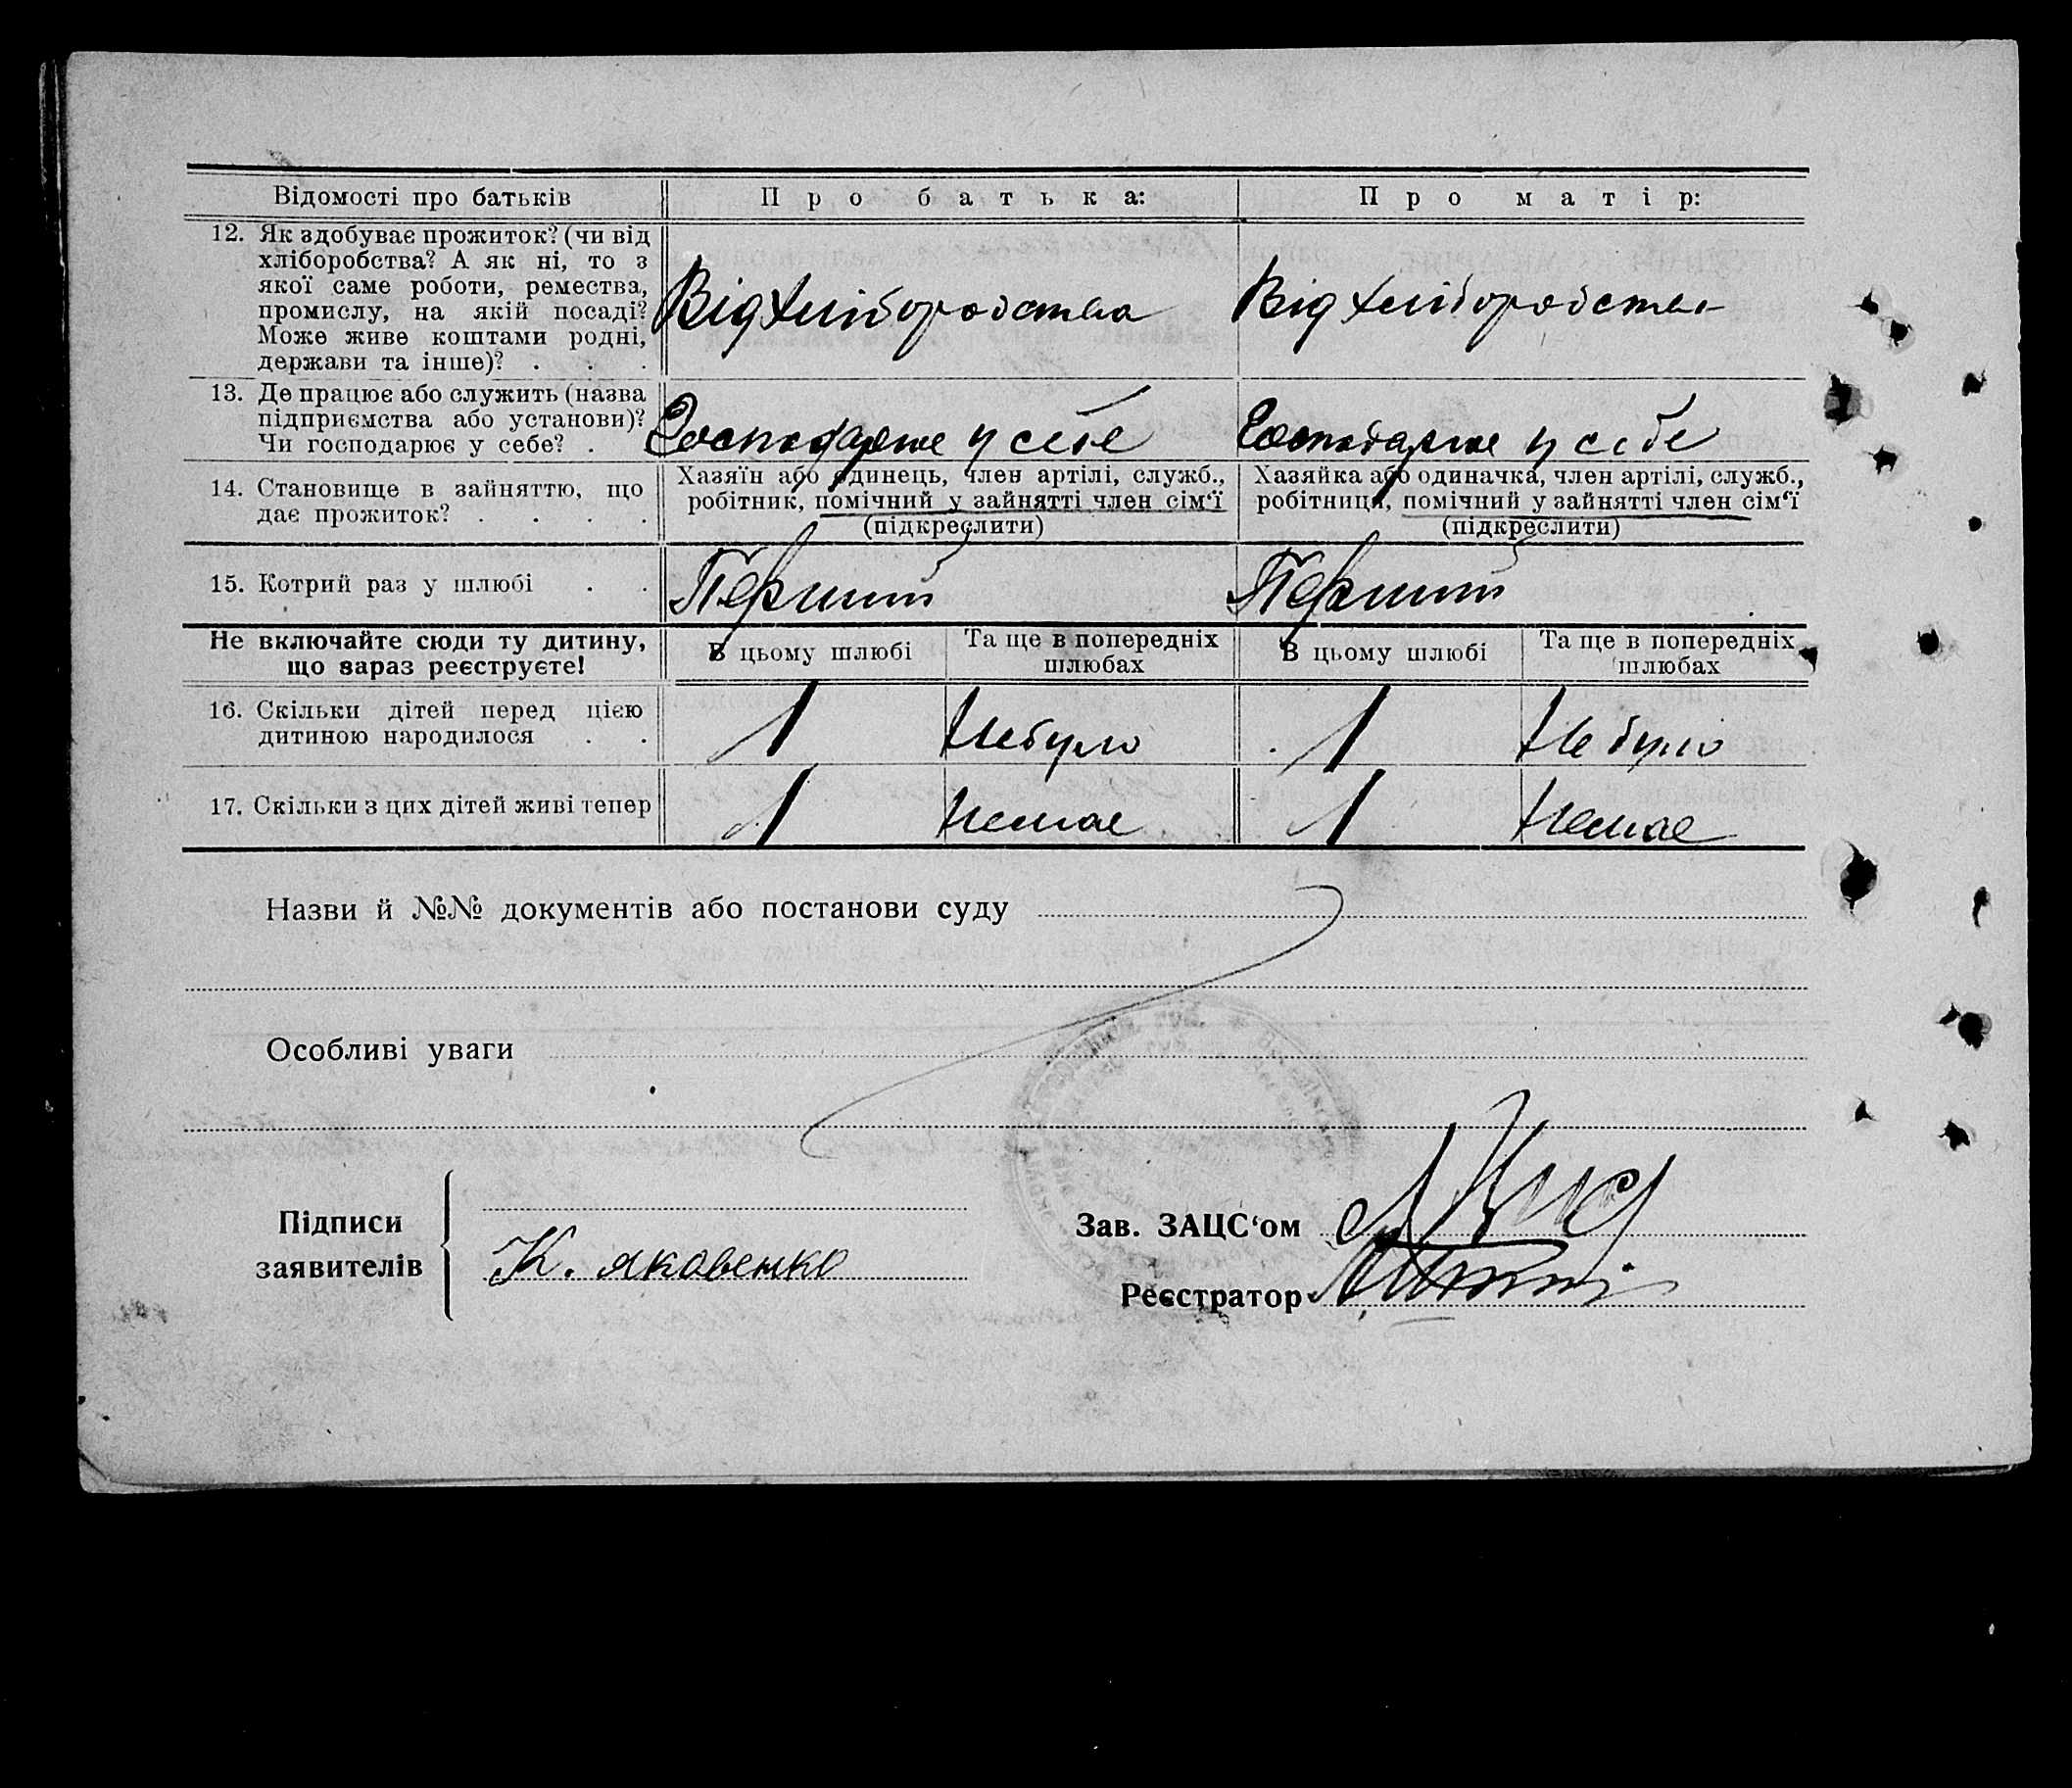 Відомості про батьків
Про батька:
Про матір:
12. Як здобуває прожиток? (чи від
хліборобства? А як ні, то з
якої саме роботи, ремества,
промислу, на якій посаді?
Може живе коштами родні,
держави та інше)? . . .
Від хліборобства
Від хліборобства
13. Де працює або служить (назва
підприємства або установи)?
Чи господарює у себе? .
Господарює у себе
Господарює у себе
14. Становище в зайняттю, що
дає прожиток? . . . .
Хазяїн або одинець, член артілі, служб.,
робітник, помічний у зайнятті член сім'ї
(підкреслити)
Хазяйка або одиначка, член артілі, служб.,
робітниця, помічний у зайнятті член сім'ї
(підкреслити)
15. Котрий раз у шлюбі . .
Перший
Перший
Не включайте сюди ту дитину,
що зараз реєструєте!
В цьому шлюбі
Та ще в попередніх
шлюбах
В цьому шлюбі
Та ще в попередніх
шлюбах
16. Скільки дітей перед цією
дитиною народилося . .
1
Не було
1
Не було
17. Скільки з цих дітей живі тепер
1
Немає
1
Немає
Назви й №№ документів або постанови суду
Особливі уваги
Підписи
заявителів
К. Яковенко
Зав. ЗАЦС'ом
Реєстратор